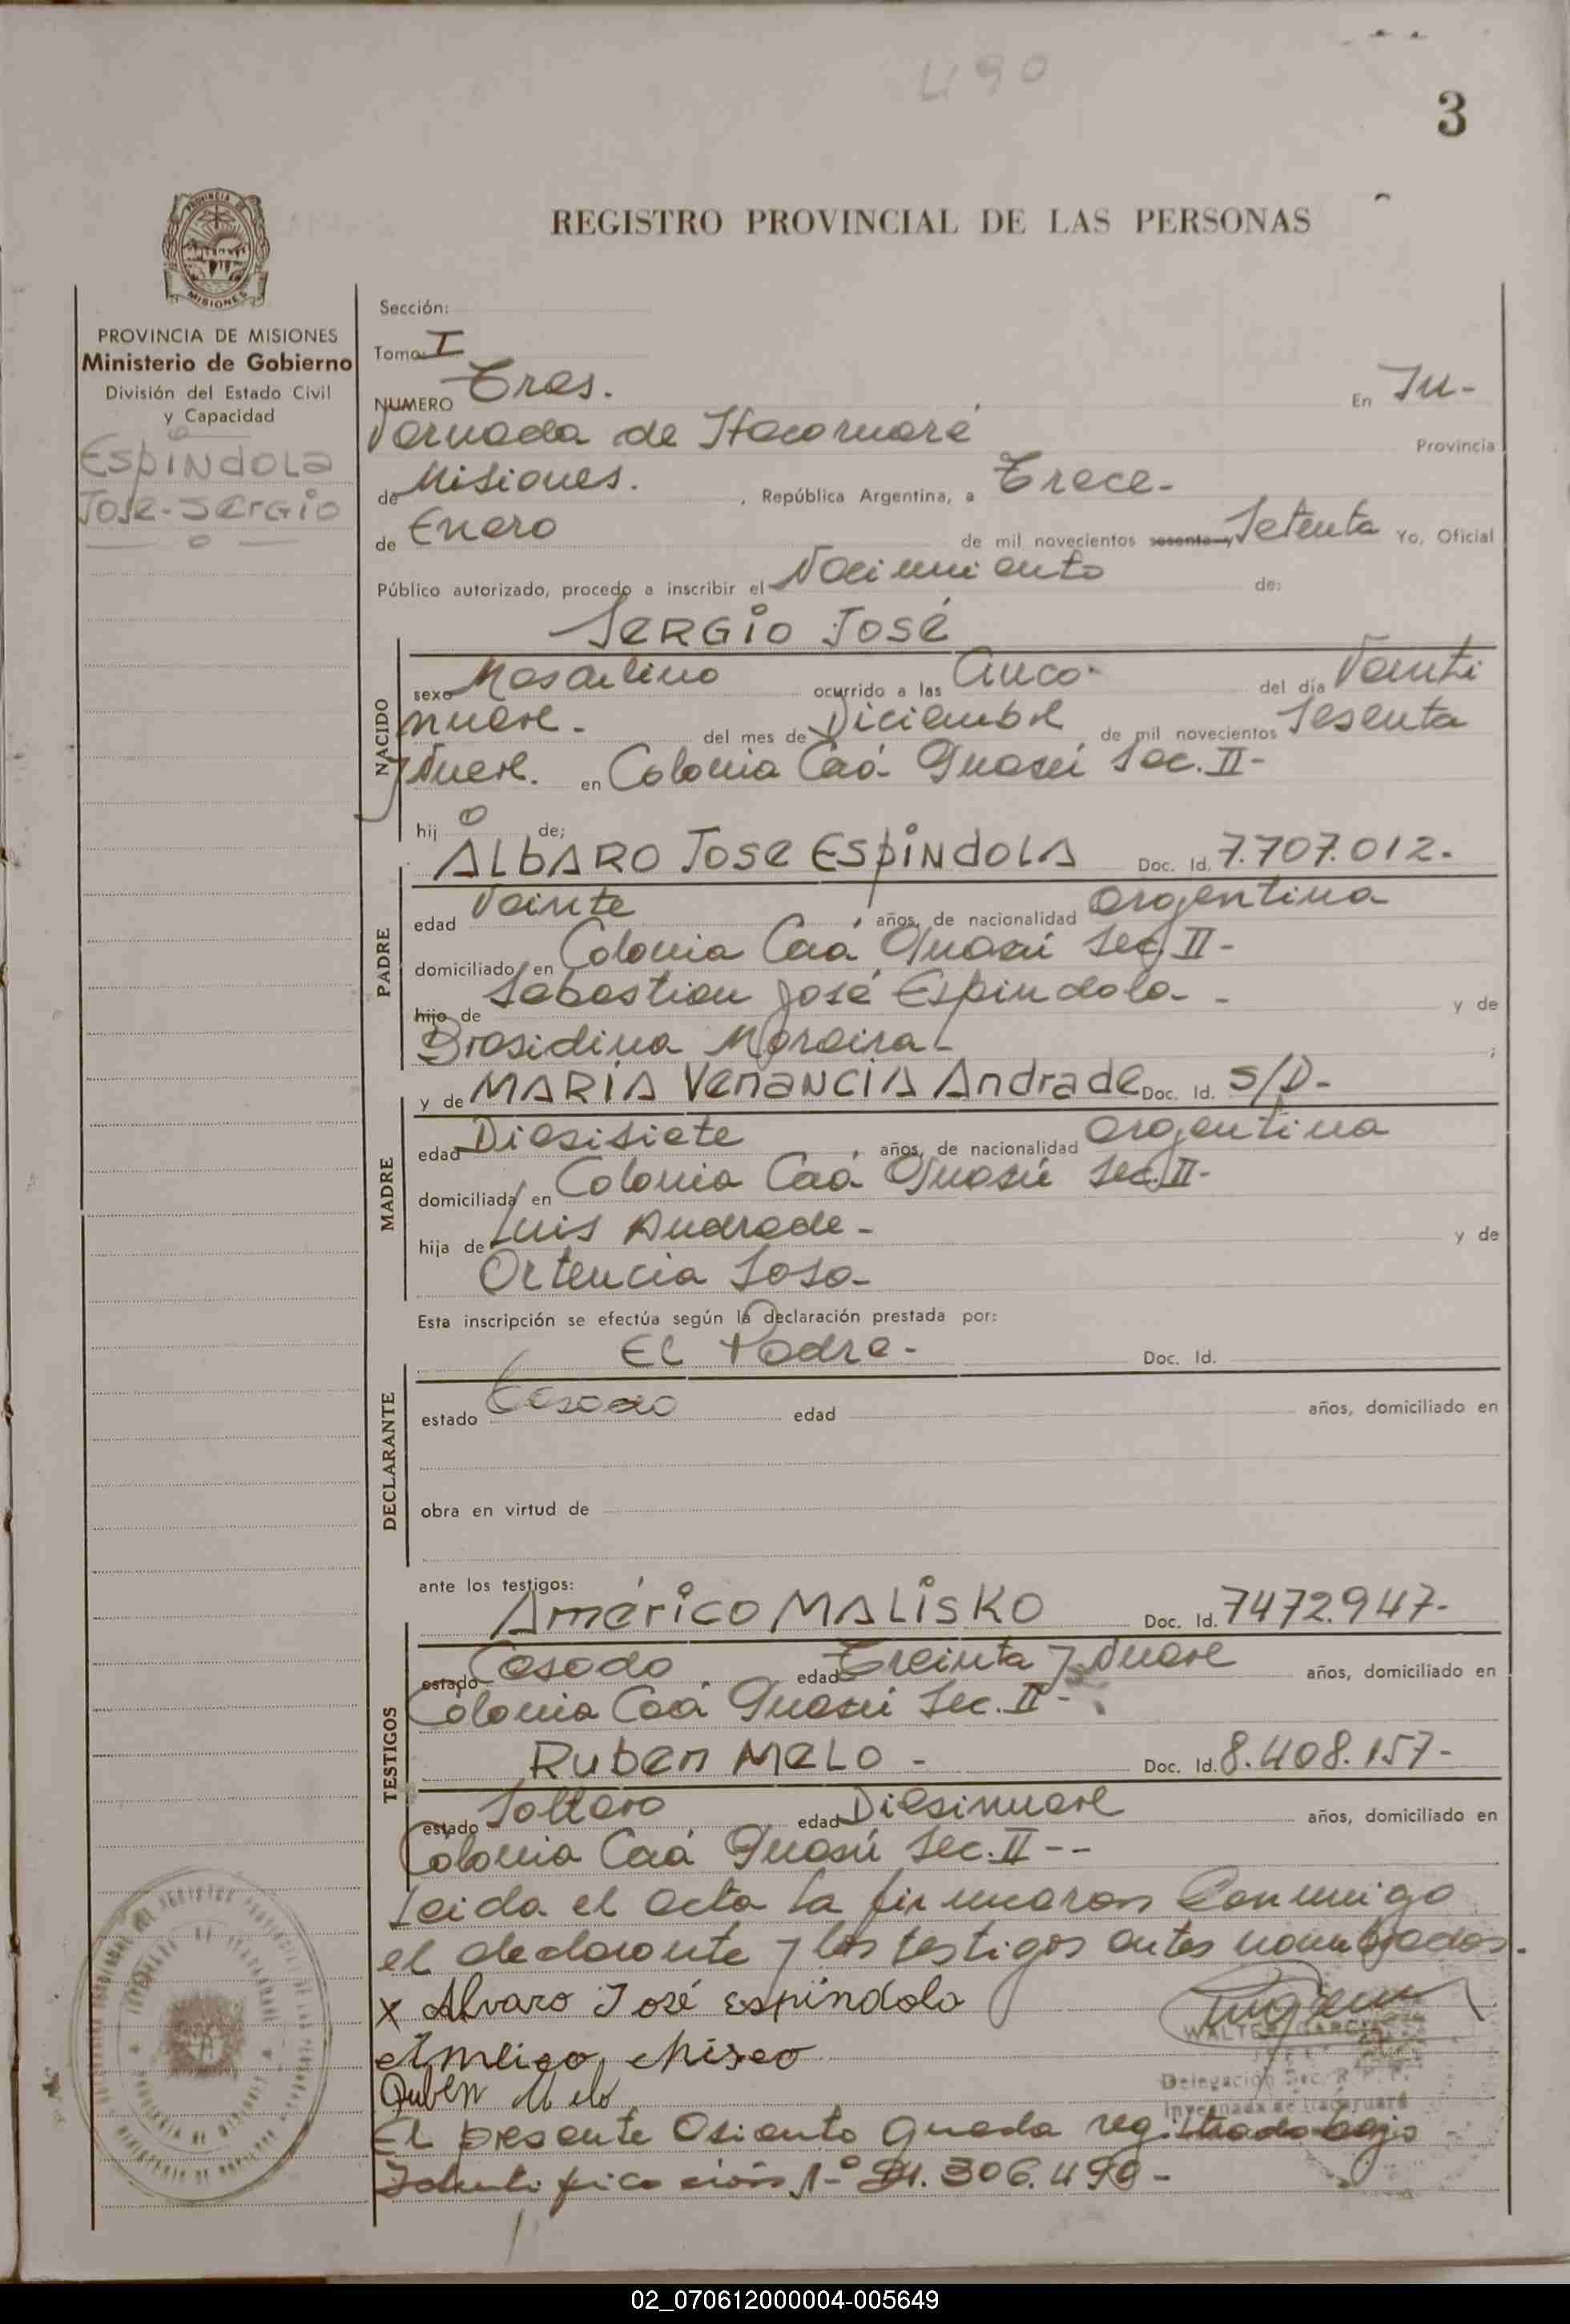 490
3
REGISTRO PROVINCIAL DE LAS PERSONAS
PROVINCIA DE MISIONES
MISIONES
PROVINCIA DE MISIONES
Ministerio de Gobierno
División del Estado Civil
y Capacidad
ESPINDOLA
JOSE-SERGIO
Sección:
Tomo I
NUMERO Tres. En In-
vernada de Itacaruaré Provincia
de Misiones. , República Argentina, a Trece-
de Enero de mil novecientos sesenta y Setenta Yo, Oficial
Público autorizado, procedo a inscribir el Nacimiento de:
SERGIO JOSÉ
NACIDO
sexo Masculino ocurrido a las Cinco- del día Veinti
nueve- del mes de Diciembre de mil novecientos Sesenta
y Nueve. en Colonia Caá Guasú Sec. II-
hij o de;
ALBARO JOSE ESPINDOLA Doc. Id. 7.707.012-
PADRE
edad Veinte años, de nacionalidad Argentina
domiciliado en Colonia Caá Guasú Sec II-
hijo de Sebastian José Espindola- - y de
Brasidina Moreira- ;
y de MARIA VENANCIA Andrade Doc. Id. S/D-
MADRE
edad Diesisiete años, de nacionalidad Argentina
domiciliada en Colonia Caá Guasú Sec. II-
hija de Luis Andrade- y de
Ortencia Sosa-
Esta inscripción se efectúa según la declaración prestada por:
El Padre- Doc. Id.
DECLARANTE
estado Casado edad años, domiciliado en
obra en virtud de
ante los testigos:
Américo MALISKO Doc. Id. 7472.947-
TESTIGOS
estado Casado edad Treinta y Nueve años, domiciliado en
Colonia Caá Guasú Sec. II-
RUBEN MELO - Doc. Id. 8.408.157-
estado Soltero edad Diesinueve años, domiciliado en
Colonia Caá Guasú Sec. II--
Leida el acta la firmaron Conmigo
el declarante y los testigos antes nombrados.
x Alvaro José Espíndola
WALTER
Ruben Melo
Delegación Sec. R. P. P.
Invernada de Itacaruaré
El presente Asiento queda registrado bajo
Identificación Nº 21.306.490-
02_070612000004-005649